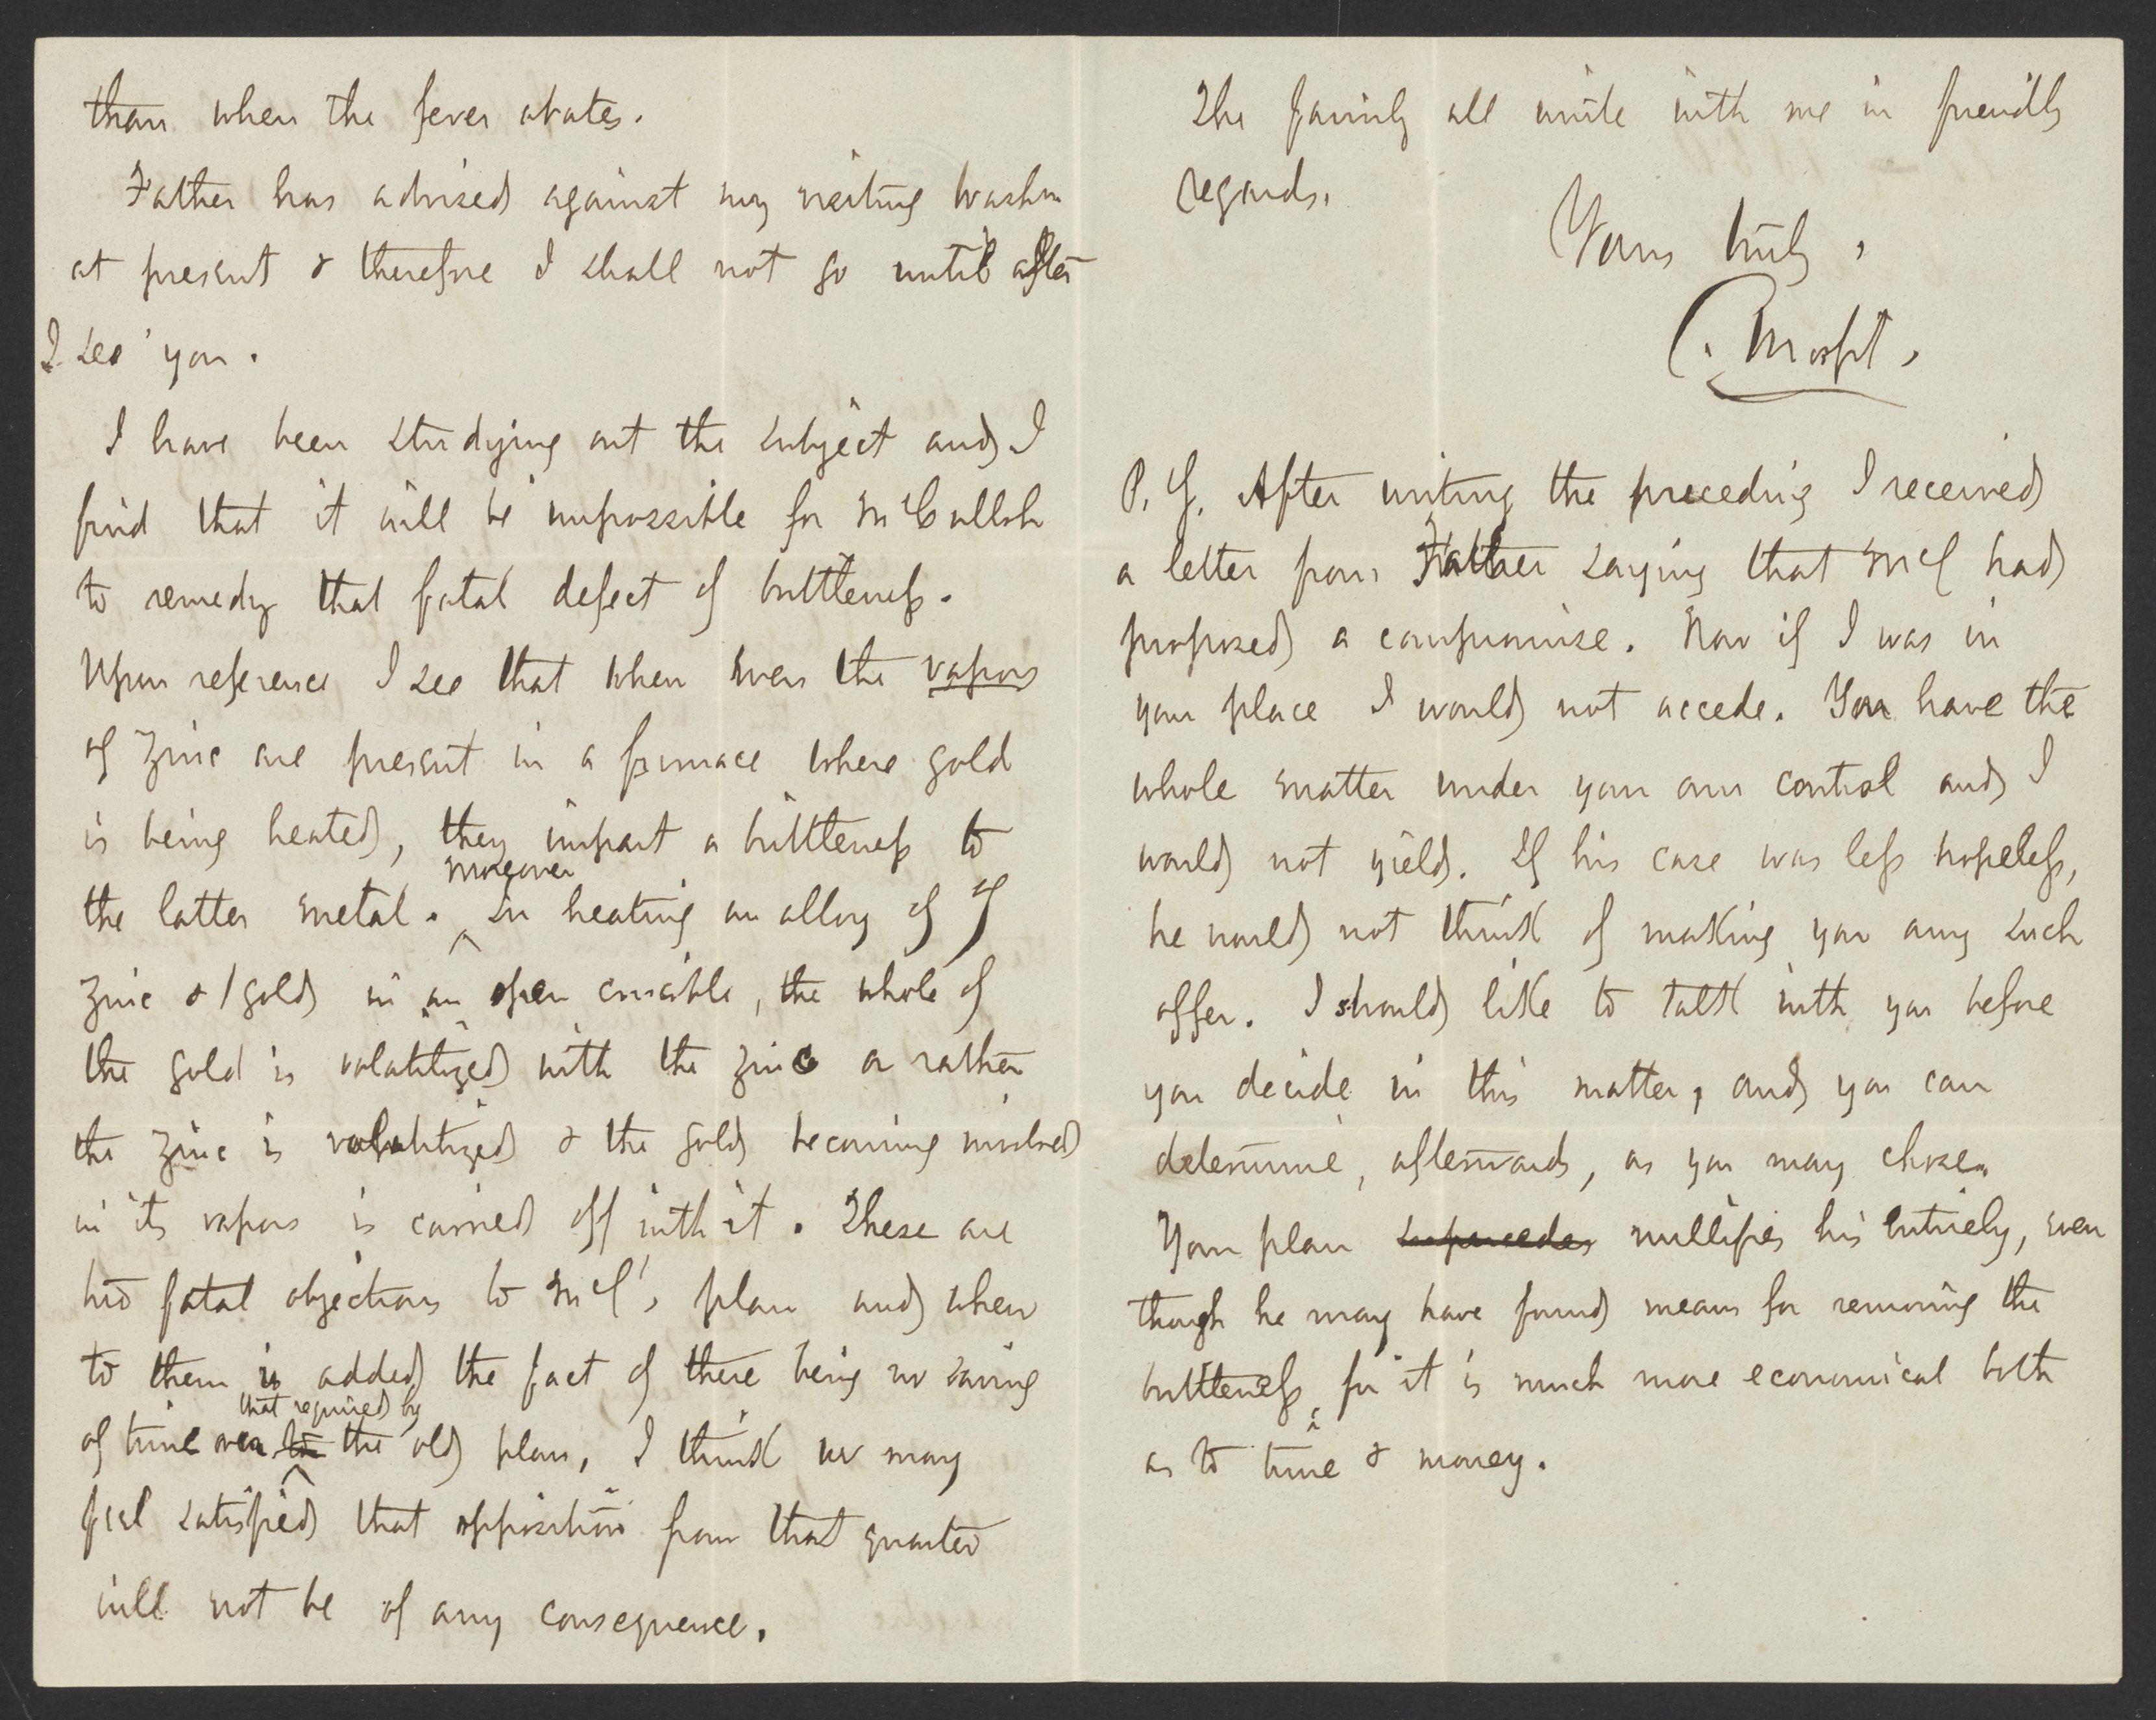 than when the fever abates.
Father has advised against my visiting Washn
at present & therefore I shall not go until after
I see you.
I have been studying out the subject and I
find that it will be impossible for McCulloh
to remedy that fatal defect of brittleness.
Upon reference I see that when even the vapors
of zinc are present in a furnace where gold
is being heated, they impart a brittleness to
moreover
the latter metal. In heating an alloy of 7
zinc & 1 gold in an open crucible, the whole of
the gold is volatilized with the zinc or rather
the zinc is volatilized & the gold becoming involved
in its vapors is carried off with it. These are
two fatal objections to McC's plan and when
to them is added the fact of there being no saving
that required by
of time over to the old plan, I think we may
feel satisfied that opposition from that quarter
will not be of any consequence.
The family all unite with me in friendly
regards.
Yours truly,
C. Morfit.
P.S. After writing the preceding I received
a letter from Father saying that McC had
proposed a compromise. Now if I was in
your place I would not accede. You have the
whole matter under your own control and I
would not yield. If his case was less hopeless,
he would not think of making you any such
offer. I should like to talk with you before
you decide in this matter, and you can
determine, afterwards, as you may chose.
Your plan supercedes nullifies his entirely, even
though he may have found means for removing the
brittleness, for it is much more economical both
as to time & money.